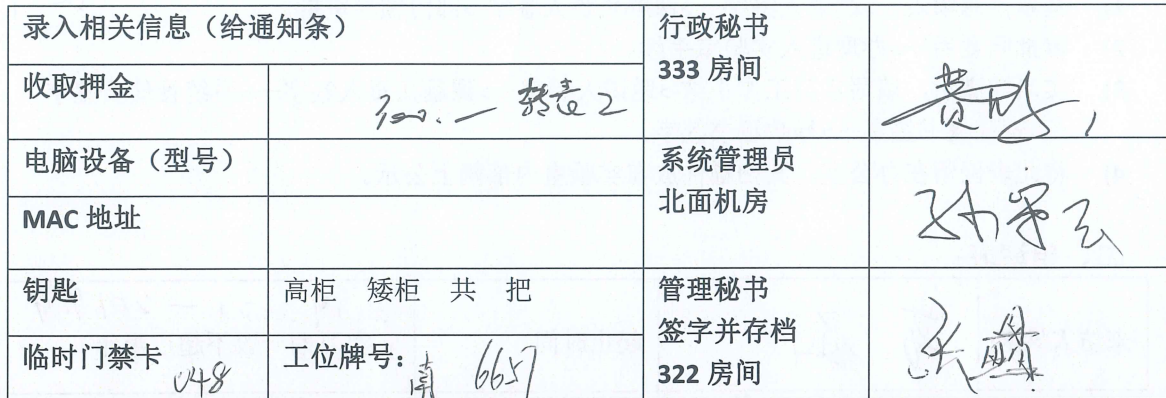 录入相关信息（给通知条）
行政秘书
333 房间
收取押金
电脑设备（型号）
系统管理员
北面机房
MAC 地址
钥匙
高柜 矮柜 共 把
管理秘书
签字并存档
322 房间
临时门禁卡 048
工位牌号：南 6657